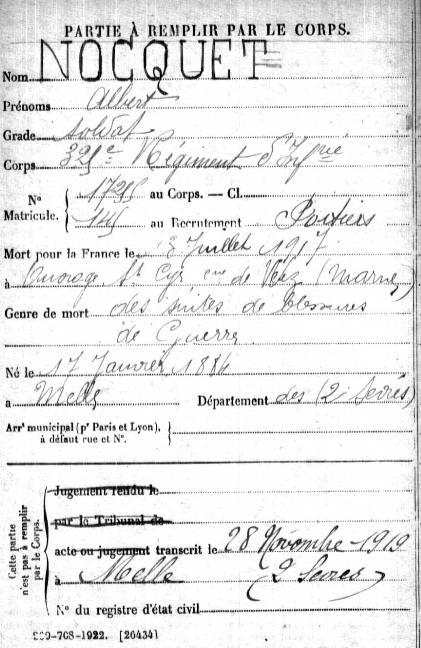 PARTIE À REMPLIR PAR LE CORPS.
Nom NOCQUET
Prénoms Albert
Grade soldat
Corps 325e Régiment d'Infrie
N° Matricule. { 1725 au Corps. — Cl.
145 au Recrutement Poitiers
Mort pour la France le 8 Juillet 1917
à Ouvrage St Cyr cne de (Marne)
Genre de mort des suites de blessures
de Guerre
Né le 17 Janvier 1884
à Melle Département des (2 Sèvres)
Arrt municipal (pr Paris et Lyon), à défaut rue et N°. {
Cette partie n'est pas à remplir par le Corps.
Jugement rendu le
par le Tribunal de
acte ou jugement transcrit le 28 Novembre 1919
à Melle (2 Sèvres)
N° du registre d'état civil
-708-1922. [26434]